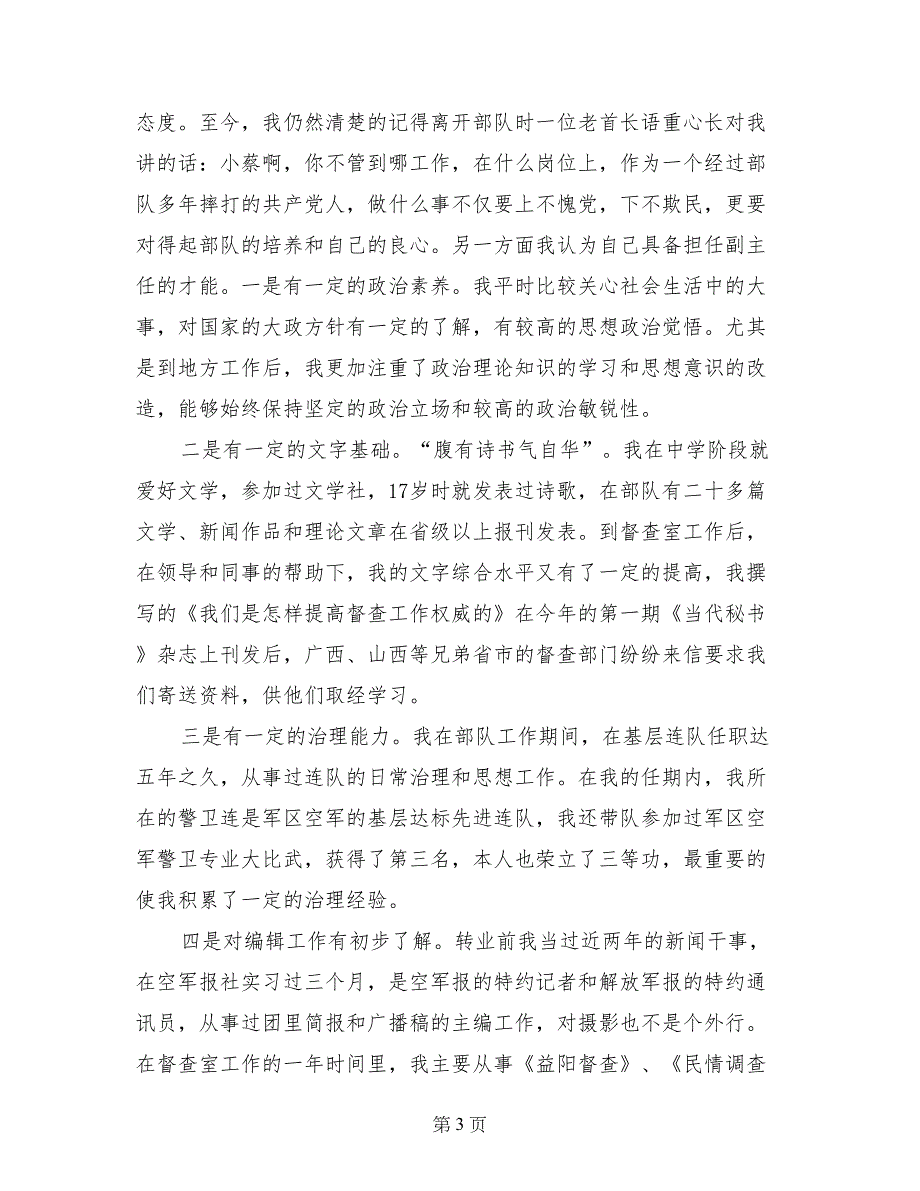 态度。至今，我仍然清楚的记得离开部队时一位老首长语重心长对我
讲的话：小蔡啊，你不管到哪工作，在什么岗位上，作为一个经过部
队多年摔打的共产党人，做什么事不仅要上不愧党，下不欺民，更要
对得起部队的培养和自己的良心。另一方面我认为自己具备担任副主
任的才能。一是有一定的政治素养。我平时比较关心社会生活中的大
事，对国家的大政方针有一定的了解，有较高的思想政治觉悟。尤其
是到地方工作后，我更加注重了政治理论知识的学习和思想意识的改
造，能够始终保持坚定的政治立场和较高的政治敏锐性。
二是有一定的文字基础。“腹有诗书气自华”。我在中学阶段就
爱好文学，参加过文学社，17岁时就发表过诗歌，在部队有二十多篇
文学、新闻作品和理论文章在省级以上报刊发表。到督查室工作后，
在领导和同事的帮助下，我的文字综合水平又有了一定的提高，我撰
写的《我们是怎样提高督查工作权威的》在今年的第一期《当代秘书
》杂志上刊发后，广西、山西等兄弟省市的督查部门纷纷来信要求我
们寄送资料，供他们取经学习。
三是有一定的治理能力。我在部队工作期间，在基层连队任职达
五年之久，从事过连队的日常治理和思想工作。在我的任期内，我所
在的警卫连是军区空军的基层达标先进连队，我还带队参加过军区空
军警卫专业大比武，获得了第三名，本人也荣立了三等功，最重要的
使我积累了一定的治理经验。
四是对编辑工作有初步了解。转业前我当过近两年的新闻干事，
在空军报社实习过三个月，是空军报的特约记者和解放军报的特约通
讯员，从事过团里简报和广播稿的主编工作，对摄影也不是个外行。
在督查室工作的一年时间里，我主要从事《益阳督查》、《民情调查
第 3 页